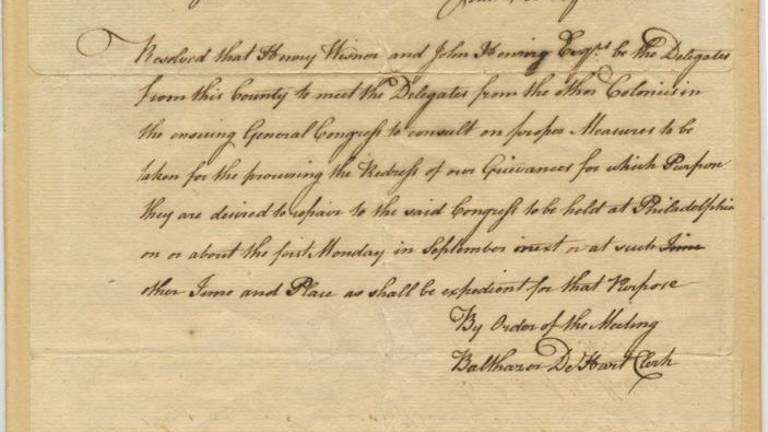 Resolved that Henry Wisner and John Herring Esqrs. be the Delegates
from this County to meet the Delegates from the other Colonies in
the ensuing General Congress to consult on proper Measures to be
taken for the procuring the Redress of our Grievances for which Purpose
they are desired to repair to the said Congress to be held at Philadelphia
on or about the first Monday in September next or at such Time
other Time and Place as shall be expedient for that Purpose
By Order of the Meeting
Balthazer De Hart Clerk